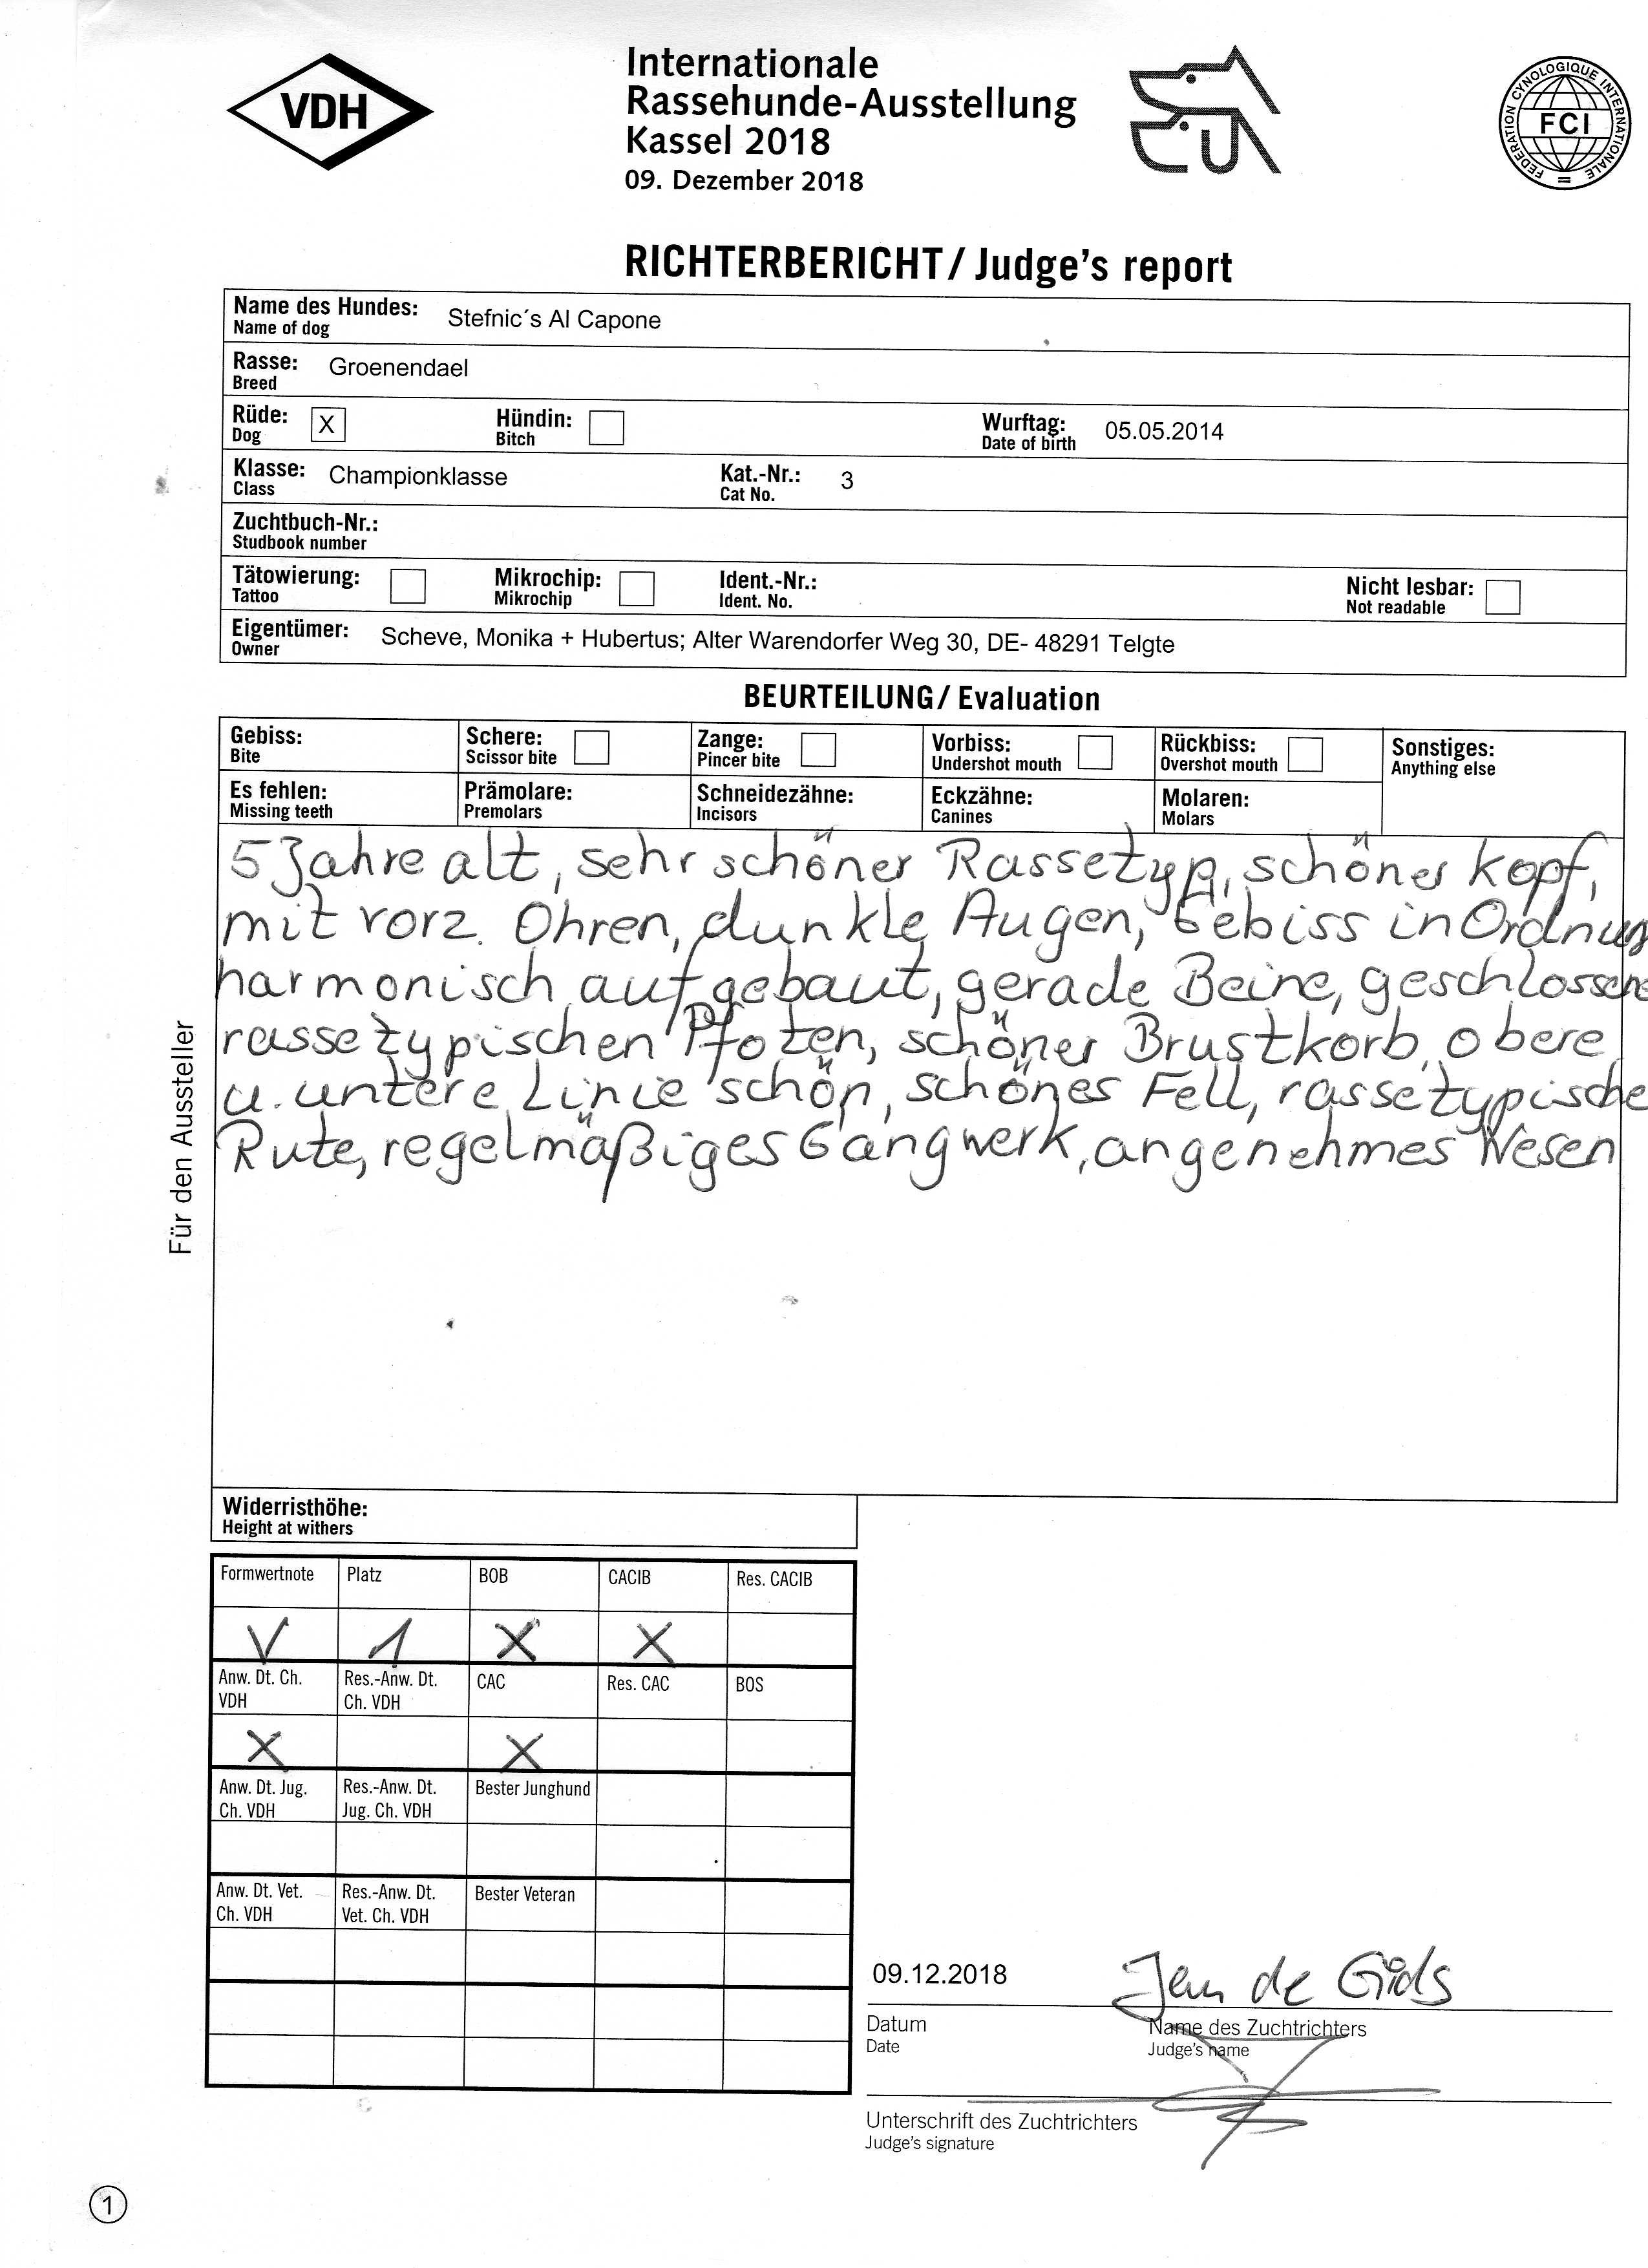 VDH
Internationale
Rassehunde-Ausstellung
Kassel 2018
09. Dezember 2018
FEDERATION CYNOLOGIQUE INTERNATIONALE
FCI
RICHTERBERICHT / Judge's report
Name des Hundes: Stefnic´s Al Capone
Name of dog
Rasse: Groenendael
Breed
Rüde: X Hündin: Wurftag: 05.05.2014
Dog Bitch Date of birth
Klasse: Championklasse Kat.-Nr.: 3
Class Cat No.
Zuchtbuch-Nr.:
Studbook number
Tätowierung: Mikrochip: Ident.-Nr.: Nicht lesbar:
Tattoo Mikrochip Ident. No. Not readable
Eigentümer: Scheve, Monika + Hubertus; Alter Warendorfer Weg 30, DE- 48291 Telgte
Owner
BEURTEILUNG / Evaluation
Gebiss: Schere: Zange: Vorbiss: Rückbiss: Sonstiges:
Bite Scissor bite Pincer bite Undershot mouth Overshot mouth Anything else
Es fehlen: Prämolare: Schneidezähne: Eckzähne: Molaren:
Missing teeth Premolars Incisors Canines Molars
5 Jahre alt, sehr schöner Rassetyp, schöner Kopf,
mit vorz. Ohren, dunkle Augen, Gebiss in Ordnung
harmonisch aufgebaut, gerade Beine, geschlossene
rassetypischen Pfoten, schöner Brustkorb, obere
u. untere Linie schön, schönes Fell, rassetypische
Rute, regelmäßiges Gangwerk, angenehmes Wesen
Für den Aussteller
Widerristhöhe:
Height at withers
Formwertnote Platz BOB CACIB Res. CACIB
V 1 X X
Anw. Dt. Ch. Res.-Anw. Dt. CAC Res. CAC BOS
VDH Ch. VDH
X X
Anw. Dt. Jug. Res.-Anw. Dt. Bester Junghund
Ch. VDH Jug. Ch. VDH
Anw. Dt. Vet. Res.-Anw. Dt. Bester Veteran
Ch. VDH Vet. Ch. VDH
09.12.2018 de Gids
Datum Name des Zuchtrichters
Date Judge's name
Unterschrift des Zuchtrichters
Judge's signature
1